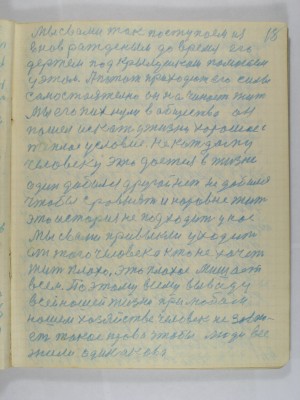 18
Мы с вами так поступаем из
внов ражденым до время его
держем под крылушкам помогаем
у этом. А патом проходют его силы
самостоятежно он на чинает жит
Мы его пихнули в общество он
пошел искать жизню хорошаю с
тёплое условие. Не каждаму
человеку это доется в жизни
один добился другой нет не добился
чтобы сровнить и наровне жит
это история не подходит у нас
Мы с вами привыкли уходить
от того человека кто не хочет
жит плохо, это плохое мишаит
всея. Поэтому всему выводу
всей нашей жизни при любом
нашем хозяйстве человек не
ет такое права чтобы люди все
жили одинаково